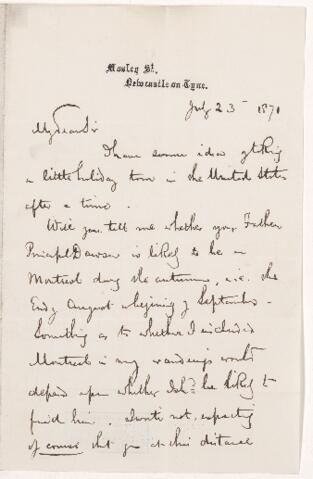 Mosley St.
Newcastle on Tyne.
July 23 1871
My dear Sir
I have some idea of taking
a little holiday tour in the United States
after a time.
Will you tell me whether your Father
Principal Dawson is likely to be in
Montreal during the autumn, i.e. the
End of August or beginning of September -
Something as to whether I included
Montreal in my wanderings would
depend upon whether I shd. be likely to
find him. I write not, expecting
of course that you at this distance